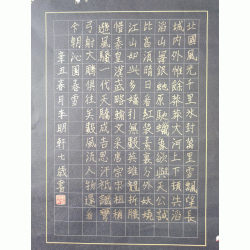 北國風光千里冰封萬里雪飄望長
城內外惟餘莽莽大河上下頓失滔
滔山舞銀蛇原馳蠟象欲與天公試
比高須晴日看紅裝素裹分外妖嬈
江山如此多嬌引無數英雄競折腰
惜秦皇漢武略輸文采唐宗宋祖稍
遜風騷一代天驕成吉思汗祗識彎
弓射大雕俱往矣數風流人物還看
今朝沁園春雪
辛丑春月李明軒七歲書